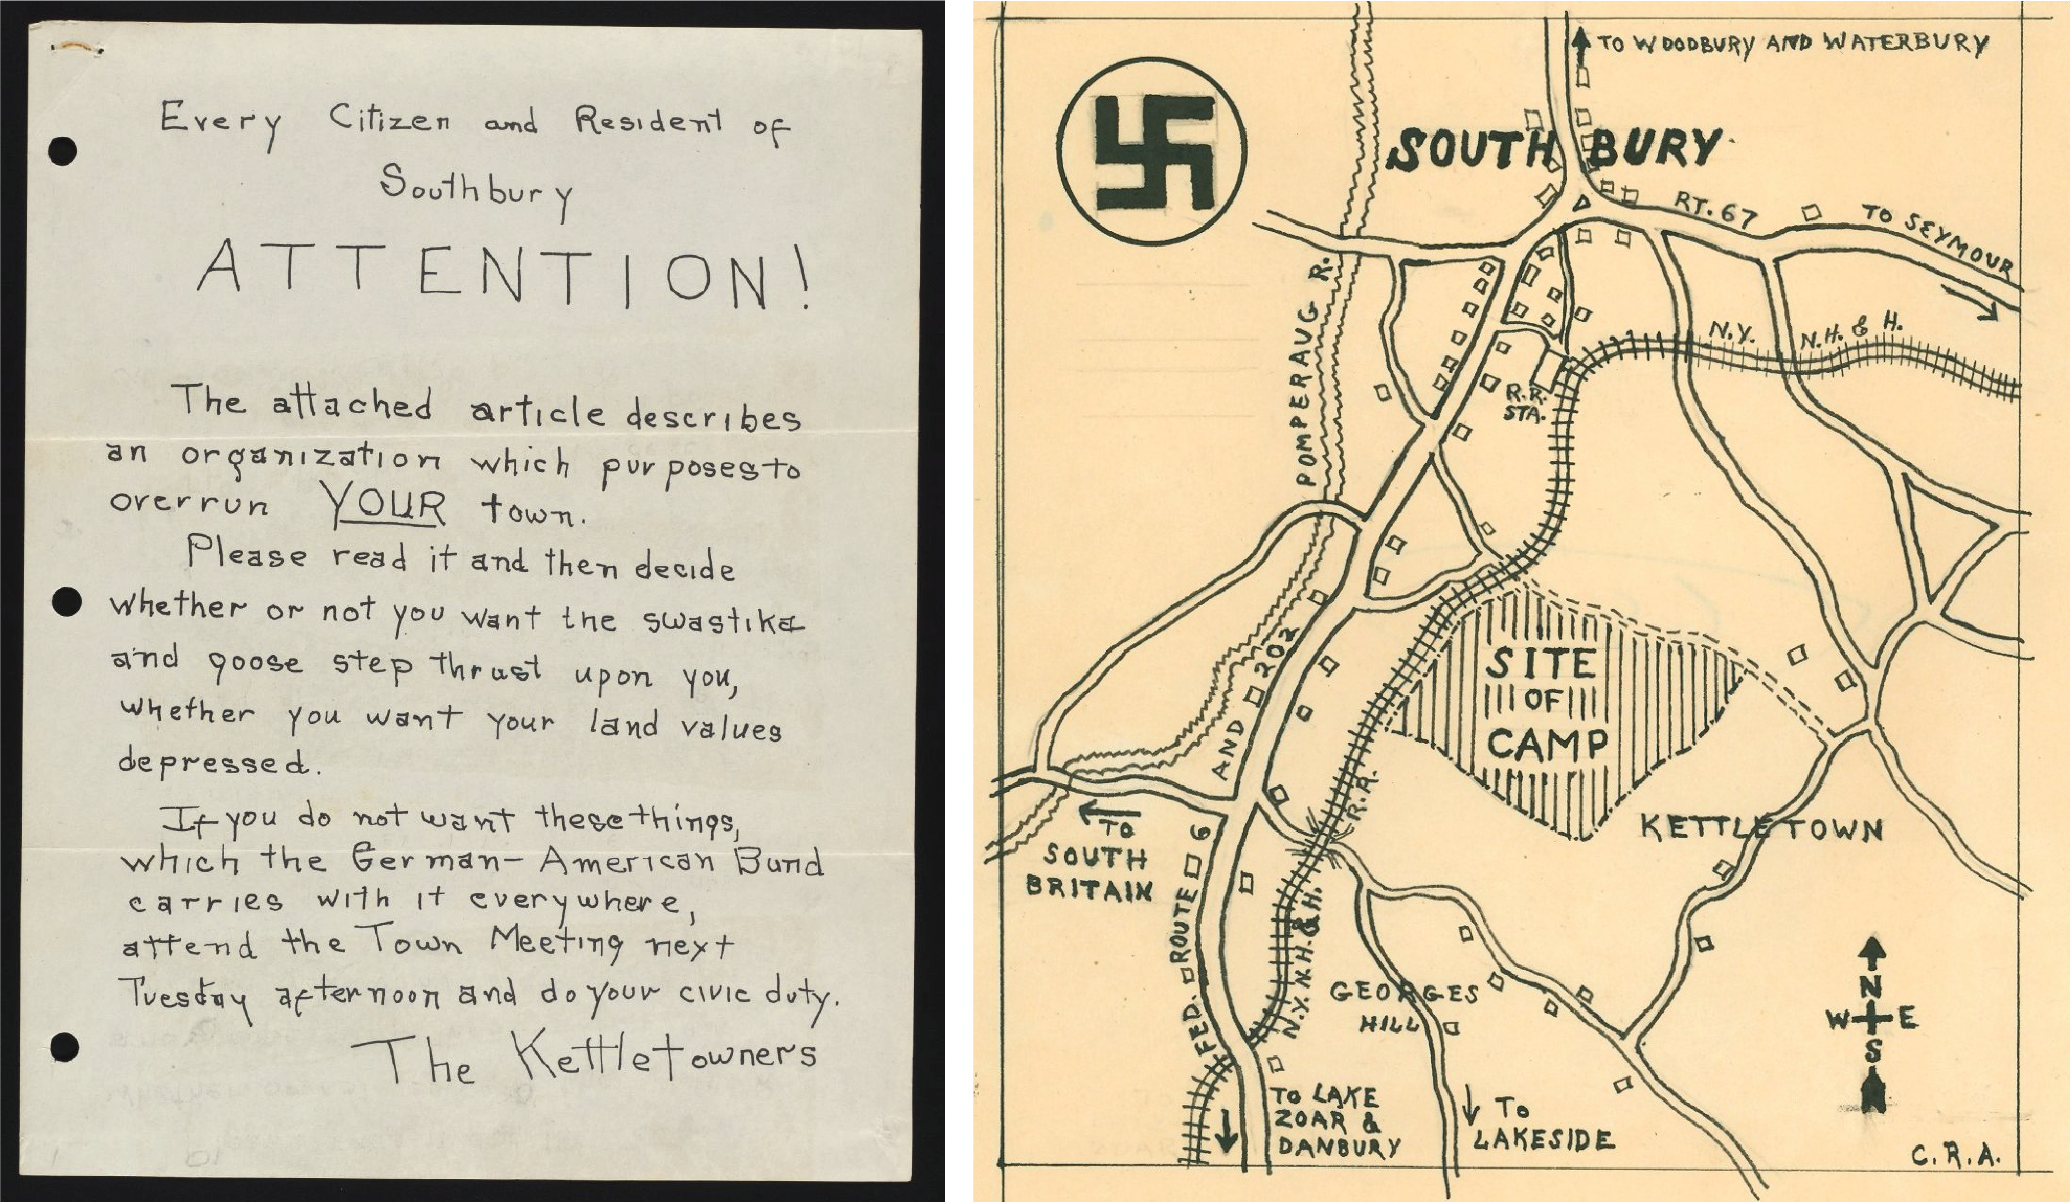 Every Citizen and Resident of
Southbury
ATTENTION!
The attached article describes
an organization which purposes to
overrun YOUR town.
Please read it and then decide
whether or not you want the swastika
and goose step thrust upon you,
whether you want your land values
depressed.
If you do not want these things,
which the German-American Bund
carries with it everywhere,
attend the Town Meeting next
Tuesday afternoon and do your civic duty.
The Kettletowners
TO WOODBURY AND WATERBURY
SOUTHBURY
RT. 67
TO SEYMOUR
POMPERAUG R.
N.Y. N.H. & H.
R.R.
STA.
AND 202
SITE
OF
CAMP
R.R.
TO
SOUTH
BRITAIN
KETTLETOWN
FED. ROUTE 6
N.Y. N.H. & H.
GEORGES
HILL
N
W E
S
TO LAKE
ZOAR &
DANBURY
TO
LAKESIDE
C.R.A.